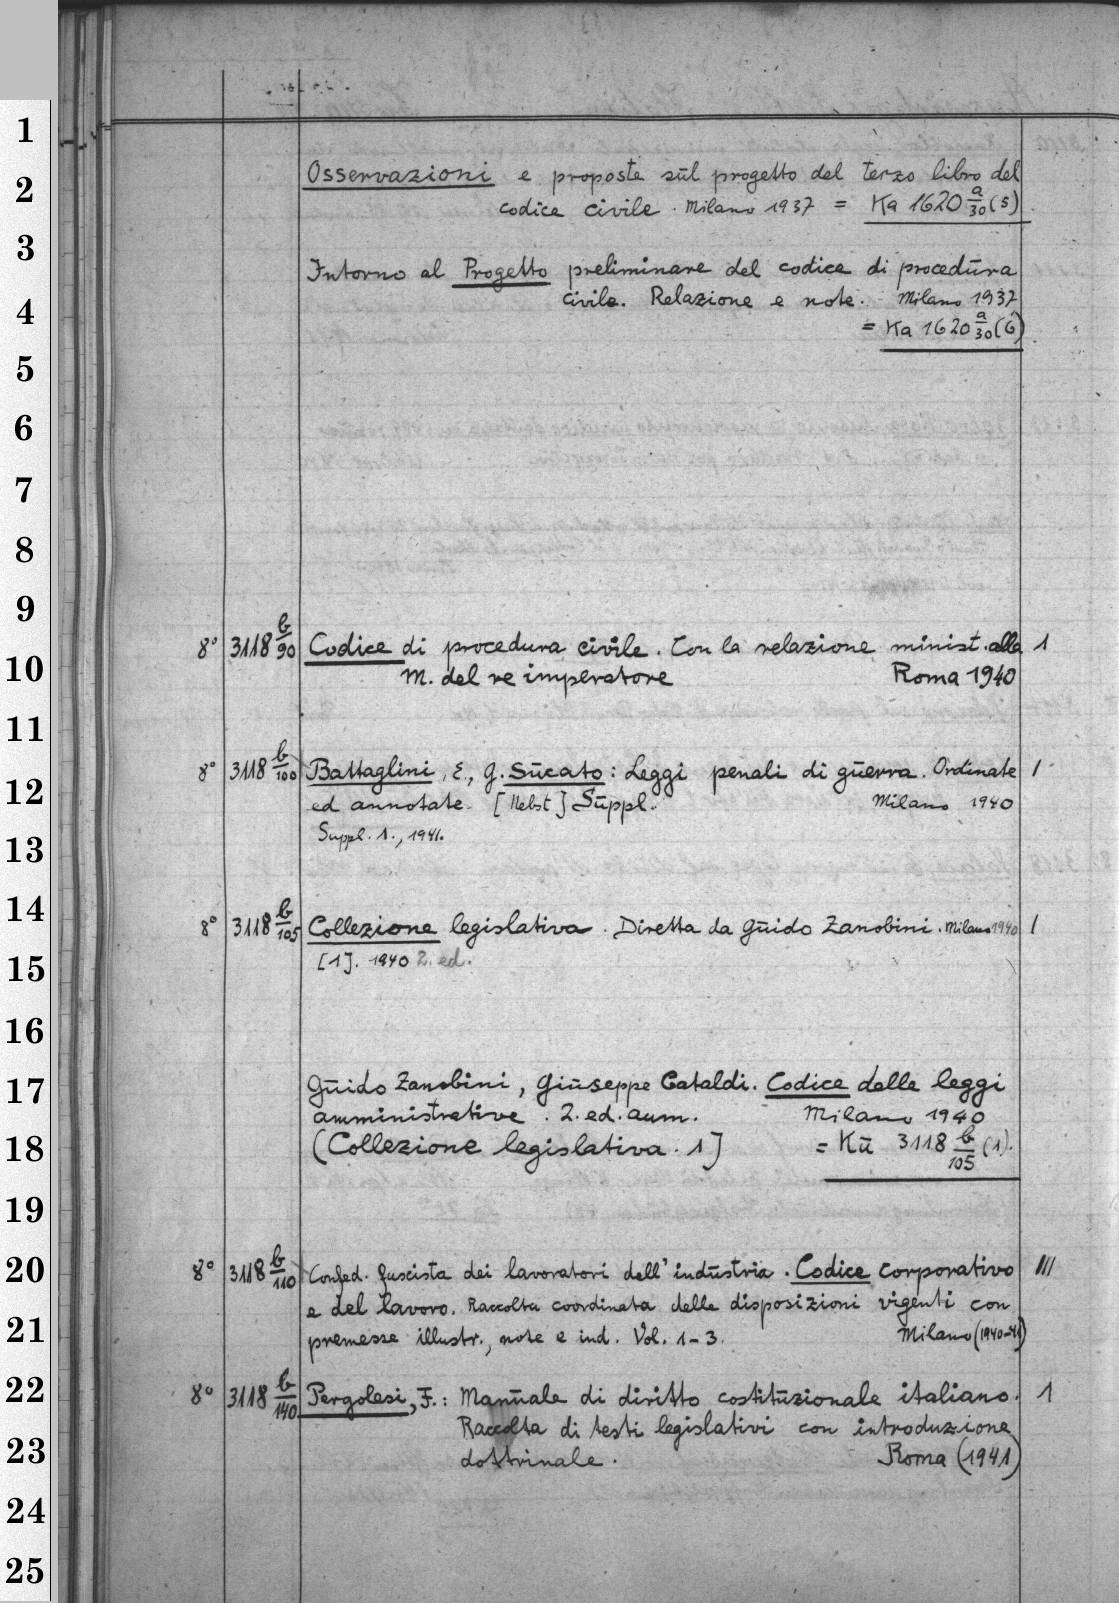 1
2
3
4
5
6
7
8
9
10
11
12
13
14
15
16
17
18
19
20
21
22
23
24
25
Osservazioni e proposte sūl progetto del terzo libro del
codice civile. Milano 1937 = Ka 1620 a/30 (5)
Intorno al Progetto preliminare del codice di procedūra
civile. Relazione e note. Milano 1937
= Ka 1620 a/30 (6)
8° 3118 b/90 Codice di procedura civile. Con la relazione minist. alla 1
M. del re imperatore Roma 1940
8° 3118 b/100 Battaglini, E., G. Sūcato: Leggi penali di gūerra. Ordinate 1
ed annotate. [Nebst] Sūppl. Milano 1940
Suppl. 1., 1941.
8° 3118 b/105 Collezione legislativa. Diretta da Gūido Zanobini. Milano 1940 1
[1]. 1940 2. ed.
Gūido Zanobini, Giūseppe Cataldi. Codice delle leggi
amministrative. 2. ed. aum. Milano 1940
(Collezione legislativa. 1] = Kū 3118 b/105 (1).
8° 3118 b/110 Confed. fascista dei lavoratori dell' indūstria. Codice corporativo III
e del lavoro. Raccolta coordinata delle disposizioni vigenti con
premesse illustr., note e ind. Vol. 1-3. Milano (1940-41)
8° 3118 b/140 Pergolesi, F.: Manūale di diritto costitūzionale italiano. 1
Raccolta di testi legislativi con introduzione
dottrinale. Roma (1941)